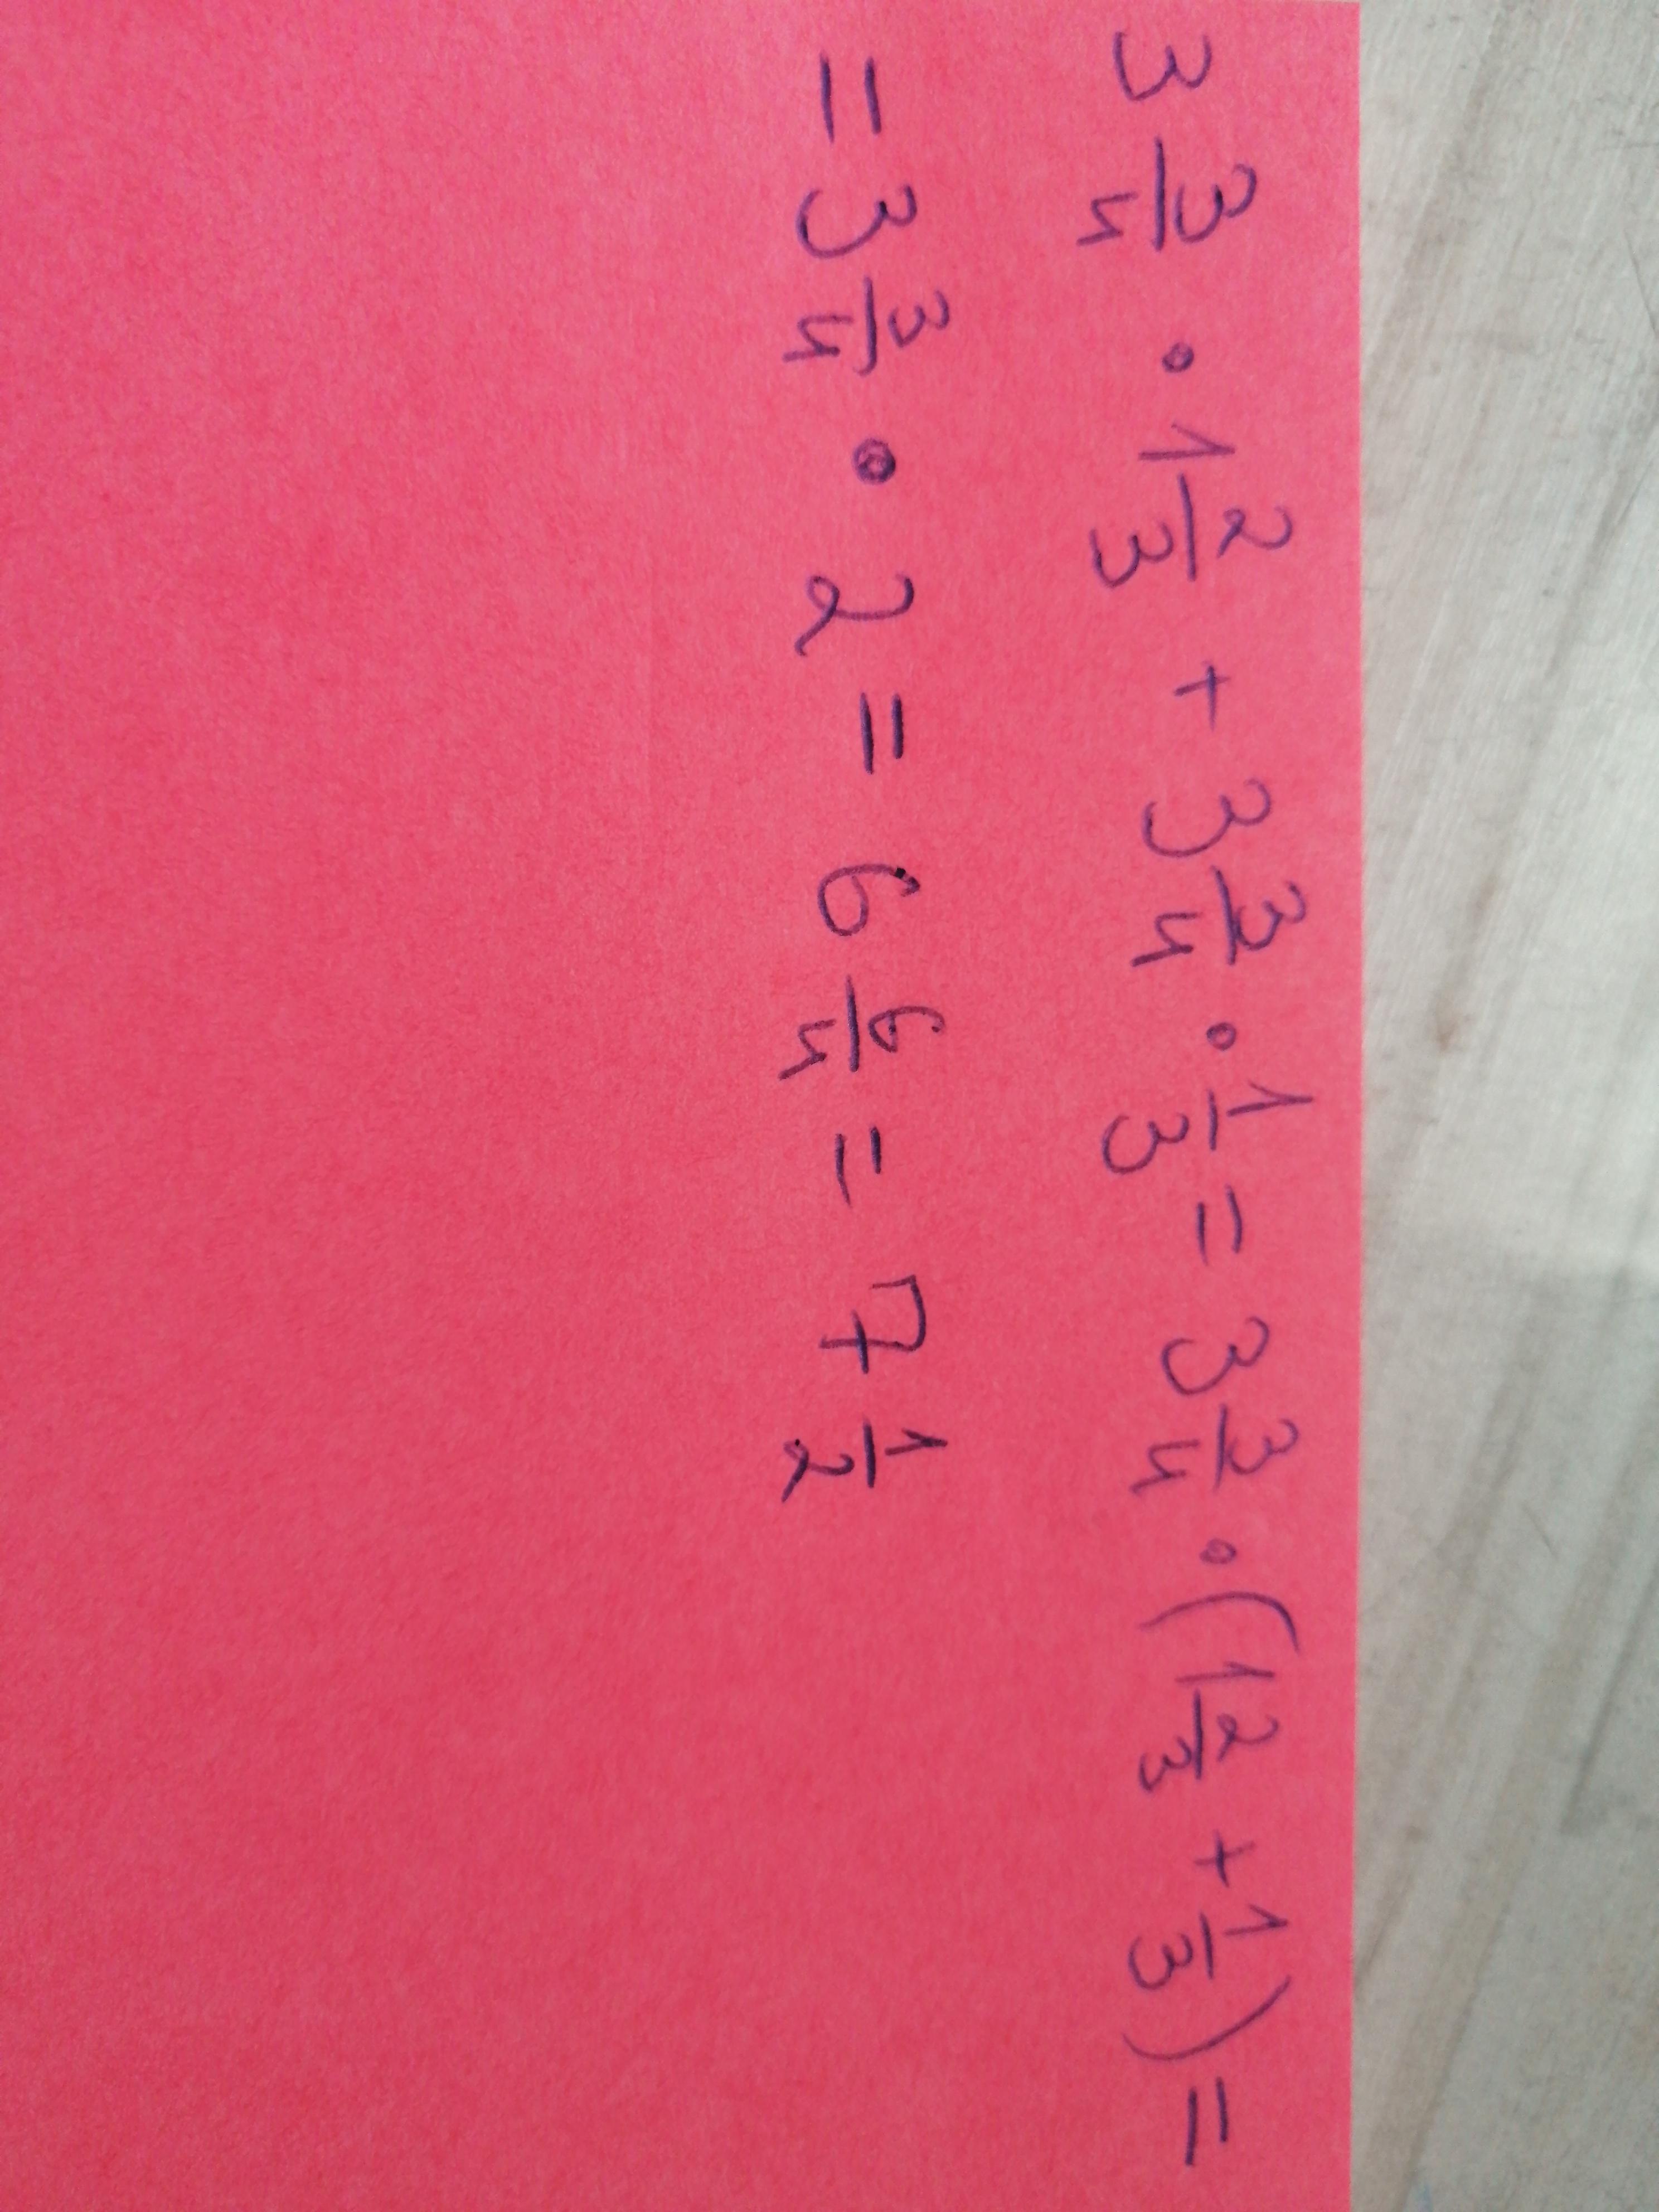 3 3/4 · 1 2/3 + 3 3/4 · 1/3 = 3 3/4 · (1 2/3 + 1/3) =
= 3 3/4 · 2 = 6 6/4 = 7 1/2